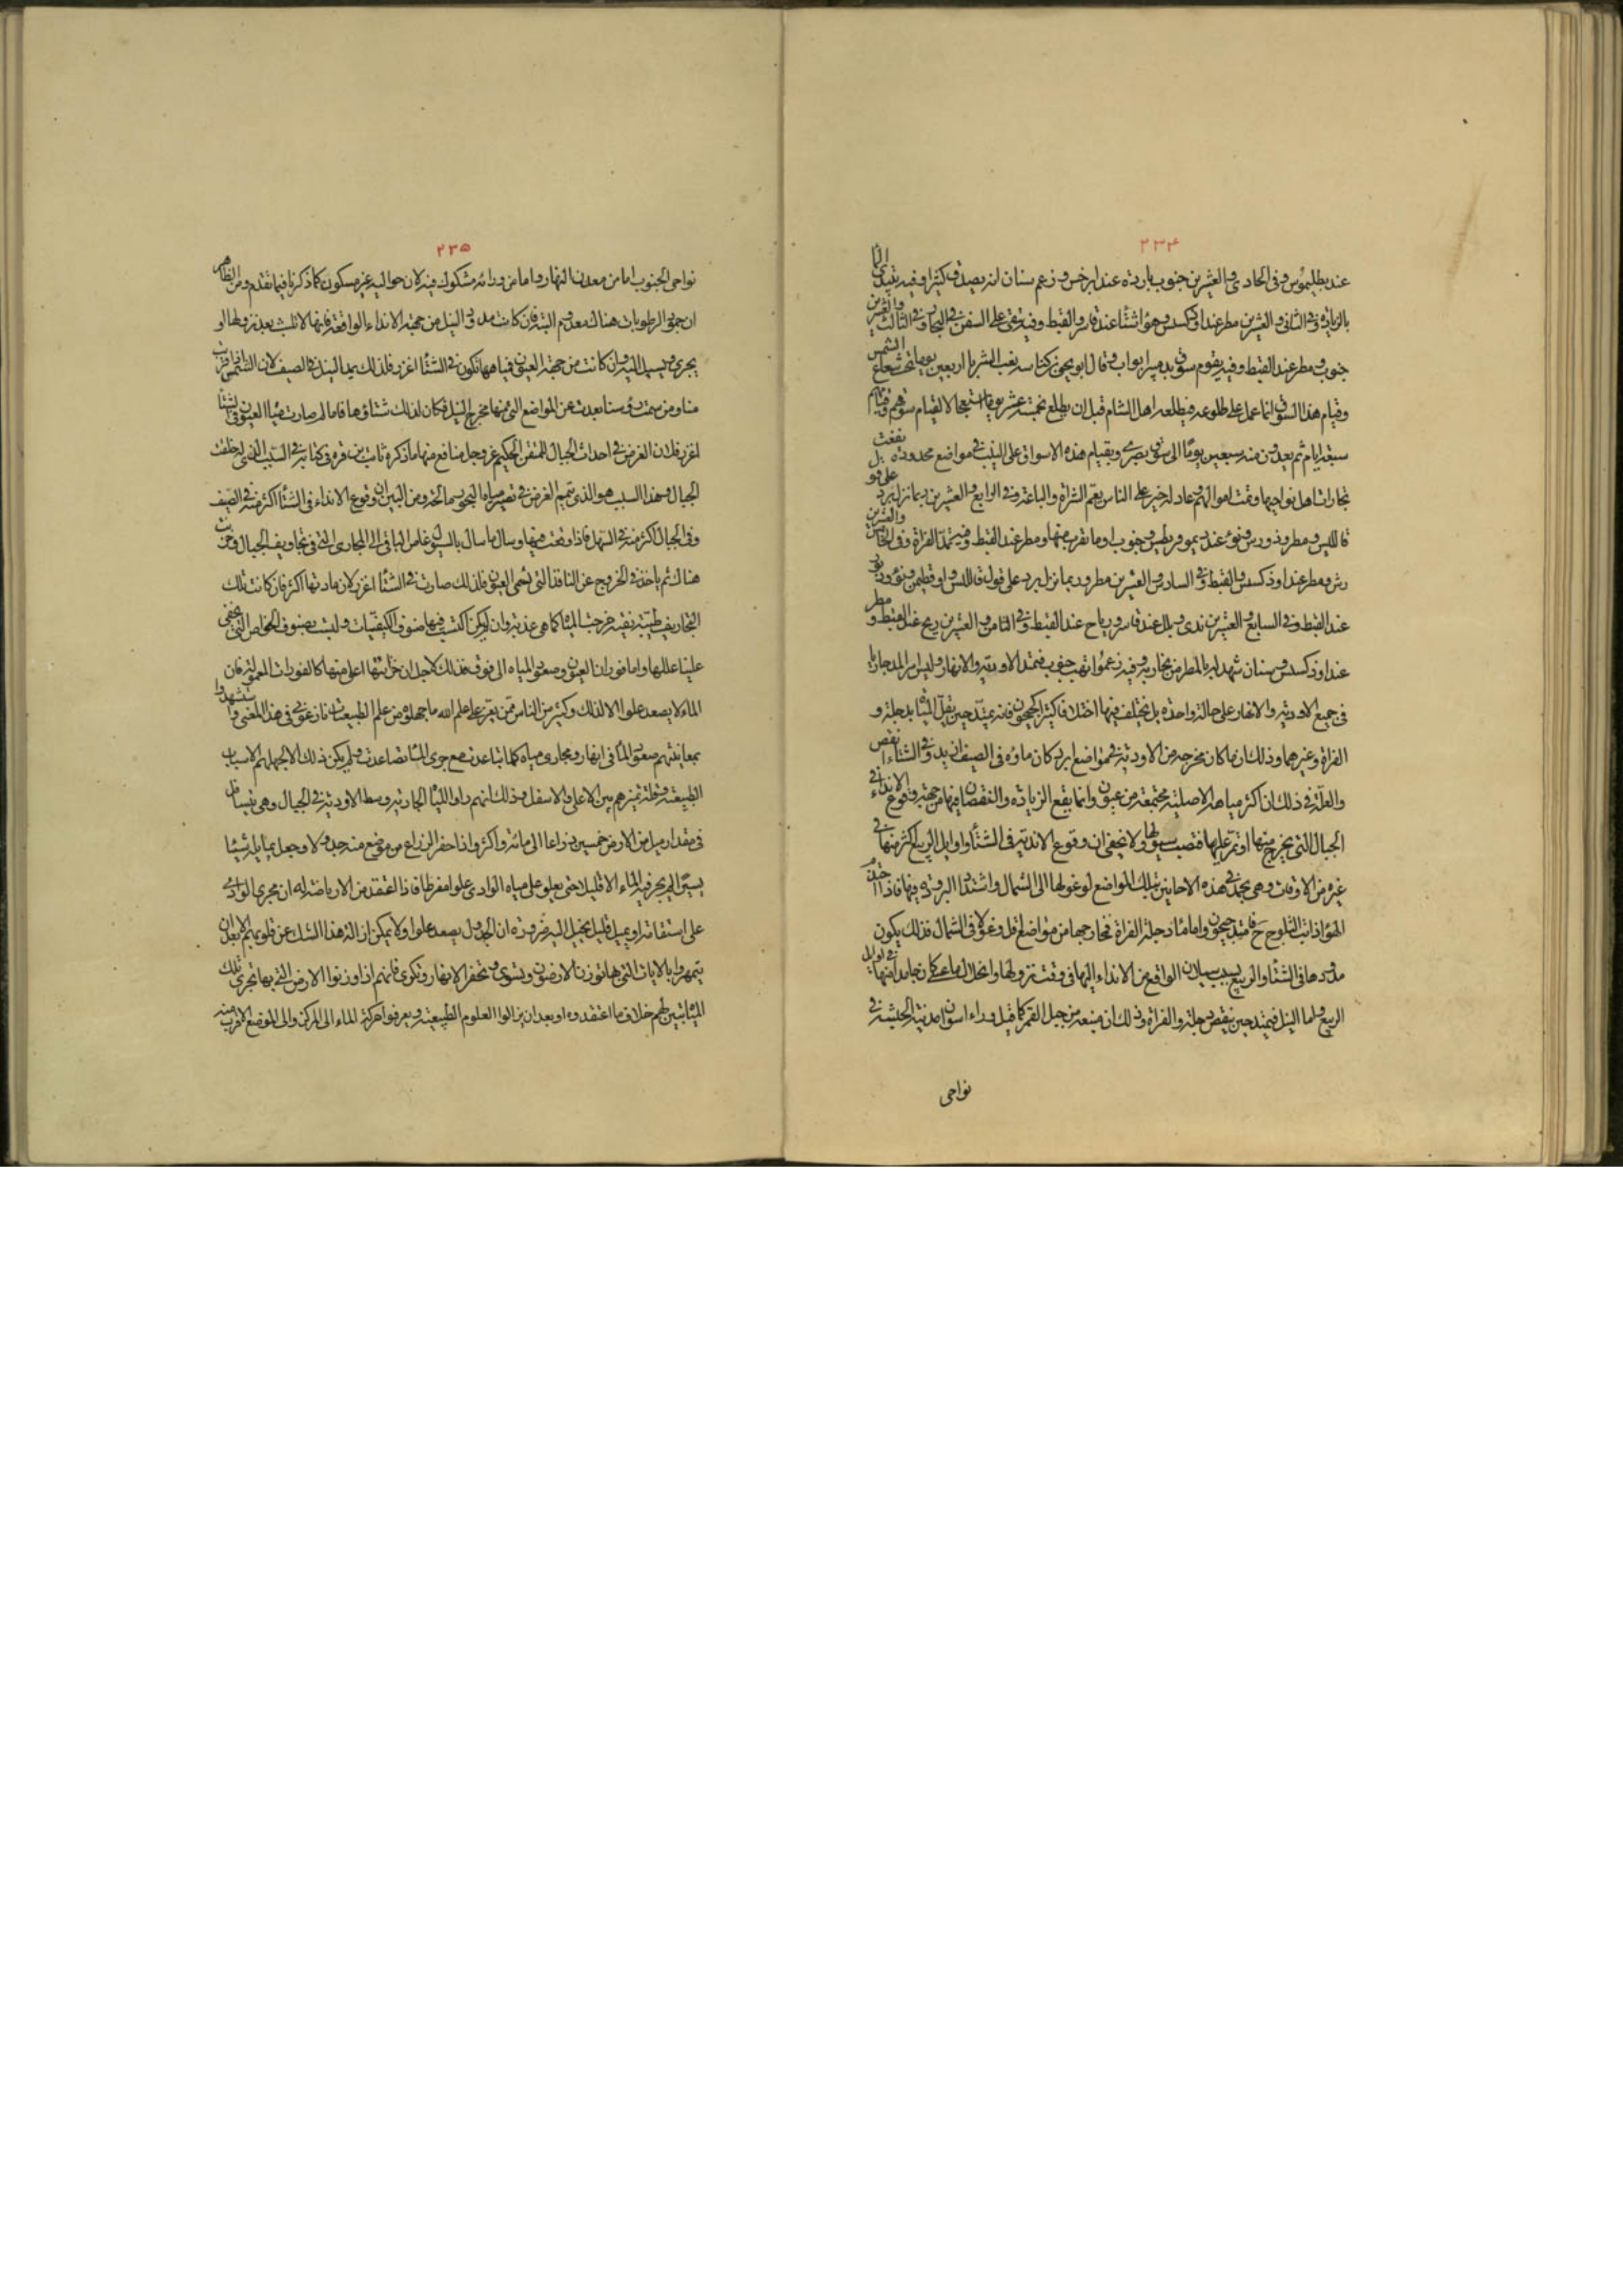 ٢٣٤
عند بطليموس وفى الحادى والعشرين جنوب باردة عند ابرخس وزعم سنان انه يصدق كثيرا وفيه يبتدى الما
بالزيادة وفى الثانى والعشرين مطر عند اوذكسس وهواء شتا عند قاسر والقبط وفيه يتقى على السفن فى البحار وفى الثالث والعشرين
جنوب ومطر عند القبط وفيه يقوم سوق بدير ايوب وقال ابو يحيى بن كناسة يغيب الثريا اربعين يوما تحت شعاع الشمس
وقيام هذا السوق انما عمل على طلوعه فيطلعه اهل الشام قبل ان يطلع بخمسة عشر يوما استعجالا لقيام سوقهم وقيام
سبعة ايام ثم يعدون منه سبعين يوما الى سوق بصرى وبقيام هذه الاسواق على النيب فى مواضع محدودة بل نفقت
تجارات اهل نواحيها ونمت اموالهم وعاد له خير على الناس يعم الشراة والباعة وفى الرابع والعشرين ربما نزل برد على قو
قاللبس ومطر وذوروس ونوء عند ديموقريطيس وجنوب او ما تقرب منها ومطر عند القبط وفيه تمد الفراة وفى الخامس والعشرين
رش ومطر عند اوذكسس والقبط وفى السادس والعشرين مطر وربما نزل برد على قول قاللبس واوقطيمن ونوء وبرد
عند القبط وفى السابع والعشرين ندى وبلل عند قاسر ورياح عند القبط وفى الثامن والعشرين ريح عند القبط ومطر
عند اوذكسس وسنان شهد له بالمطر من تجاربه وفيه زعموا تهب جنوب فتمد الاودية والانهار وليس امر المد جاريا
فى جميع الاودية والانهار على حالة واحدة بل تختلف فيها اختلافا كثيرا كجيحون فانه يمتد حين يقل المياه بدجلة و
الفراة وغيرهما وذلك ان ما كان مخرجه من الاودية فى مواضع ابرد كان ماؤه فى الصيف ازيد وفى الشتاء انقص
والعلة فى ذلك ان اكثر مياهه الاصلية مجتمعة من عيون وانما يقع الزيادة والنقصان فيها من جهة وقوع الانداء فى
الجبال التى يخرج منها او تمر عليها فتصب سيولها ولا يخفى ان وقوع الاندية فى الشتاء واوايل الربيع اكثر منها فى
غيره من الاوقات وهى يجمد فى هذه الاحايين بتلك المواضع لوغولها الى الشمال واشتداد البرودة فيها فاذا احتد
الهواء ذابت الثلوج ح فامتد جيحون واما ماء دجلة والفراة فمخارجها من مواضع اقل وغولا فى الشمال فذلك يكون
مدودها فى الشتاء والربيع بسبب سيلان الواقع من الانداء اليها فى وقت نزولها وانحلال ما عسى كان جامدا منها فى اوايل
الربيع واما النيل فيمتد حين ينقص دجلة والفراة وذلك ان منبعه من جبل القمر كما قيل وراء اسوان مدينة الحبشة فى
نواحى
٢٣٥
نواحى الجنوب اما من معدل النهار واما من ورائه مشكوك فيه لان حواليه غير مسكون كما ذكرنا فيما تقدم ومن الظاهر
ان جمود الرطوبات هناك معدوم البتة فان كانت مدود النيل من جهة الانداء الواقعة فانها لا تلبث بعد نزولها او
يجرى ويسيل اليه وان كانت من جهة العيون فمياهها تكون فى الشتاء اغزر فلذلك يمد النيل فى الصيف لان الشمس اذا قربت
منا ومن سمت رؤسنا بعدت عن المواضع التى منها مخرج النيل فكان لذلك شتاؤها فاما لم صارت مياه العيون فى الشتا
اغزر فلان الغرض فى احداث الجبال للمتقن الحكيم عز وجل منافع منها ما ذكره ثابت بن قرة فى كتابه فى السبب الذى له خلقت
الجبال وهذا السبب هو الذى يتمم الغرض فى تصيير مياه البحر بسمائحة ومن البين ان وقوع الانداء فى الشتاء اكثر منه فى الصيف
وفى الجبال اكثر منه فى السهل فاذا وقعت فيها وسال ما سال بالسيول غاص الباقى الى المجارى التى فى تجاويف الجبال وخزنت
هناك ثم ياخذ فى الخروج عن المنافذ التى تسمى العيون فلذلك صارت فى الشتاء اغزر لان مادتها اكثر فان كانت تلك
التجاويف طيبة نقية خرجت المياه كما هى عذبة وان لم يكن اكتسب فيها صنوف الكيفيات وليست بصنوف الخواص التى يخفى
علينا عللها واما فوران العيون وصعود المياه الى فوق فذلك لاجل ان خزانتها اعلى منها كالفورات المعمولة فان
الماء لا يصعد علوا الا لذلك وكثير من الناس ممن يقر على علم الله ما جهلوه من علم الطبيعيات نازعونى فى هذا المعنى واستشهدوا
بمعاينتهم صعود الماء فى انهار ومجارى مياه كلما تباعدت مع جرى الماء تصاعدت ولم يكن ذلك الا لجهلهم الاسباب
الطبيعية وقلة تميزهم بين الاعلى والاسفل وذلك انهم راوا المياه الجارية وسط الاودية فى الجبال وهى تتسافل
فى مقدار ميل من الارض خمسين ذراعا الى مائة واكثر واذا حفر الزراع من موضع منه جدولا وجعل بما يله شيئا
يسيرا لم يجر فيه الماء الا قليلا حتى يعلو على مياه الوادى علوا مفرطا فاذا اعتقد من لا رياضة له ان مجرى الوادى
على استقامة او يميل قليل تخيل اليه ضرورة ان الجدول يصعد علوا ولا يمكن ازالة هذا الشك عن قلوبهم الا بعد ان
يتمهروا بالآلات التى بها توزن الارضون وتسوى وتحفر الانهار وتكرى فانهم اذا وزنوا الارض التى بها تجرى تلك
المياه تبين لهم خلاف ما اعتقدوه او بعد ان يزاولوا العلوم الطبيعية ويعرفوا حركة الماء الى المركز والى الموضع الاقرب منه